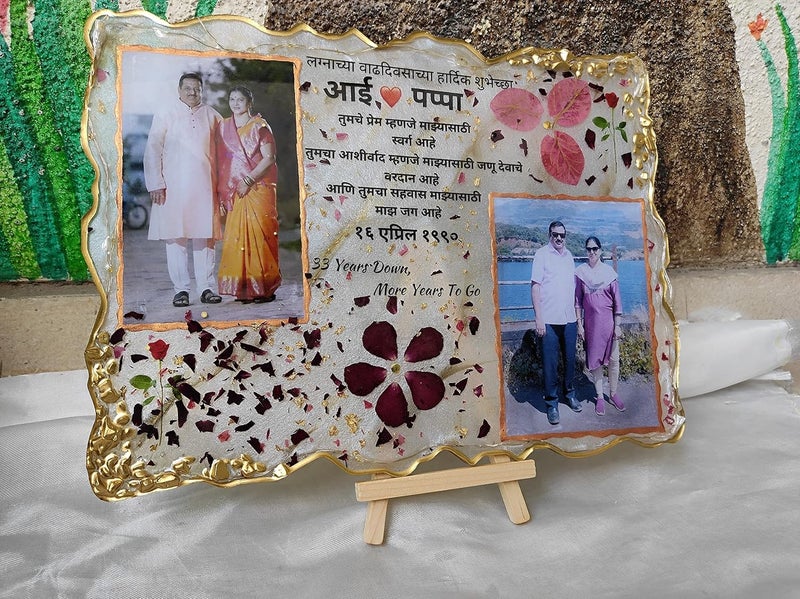 लग्नाच्या वाढदिवसाच्या हार्दिक शुभेच्छा
आई ❤️ पप्पा
तुमचे प्रेम म्हणजे माझ्यासाठी
स्वर्ग आहे
तुमचा आशीर्वाद म्हणजे माझ्यासाठी जणू देवाचे
वरदान आहे
आणि तुमचा सहवास माझ्यासाठी
माझ जग आहे
१६ एप्रिल १९९०
33 Years Down,
More Years To Go